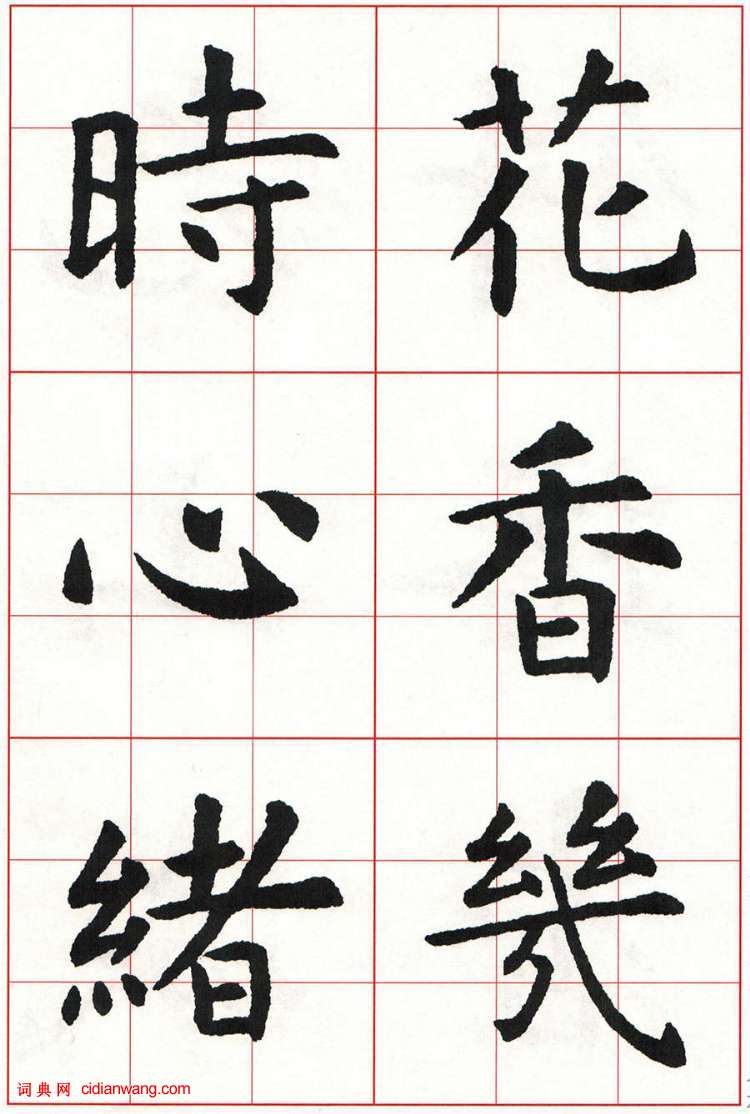 花香幾
時心緒
词典网 cidianwang.com